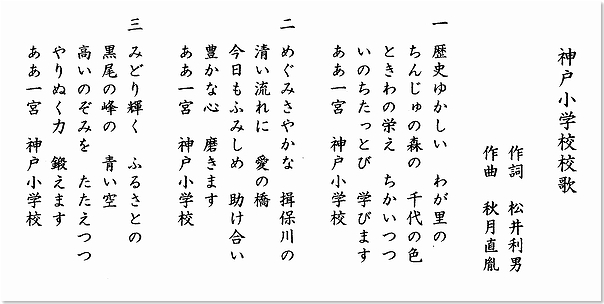 神戸小学校校歌
作詞 松井利男
作曲 秋月直胤
一 歴史ゆかしい わが里の
ちんじゅの森の 千代の色
ときわの栄え ちかいつつ
いのちたっとび 学びます
ああ一宮 神戸小学校
二 めぐみさやかな 揖保川の
清い流れに 愛の橋
今日もふみしめ 助け合い
豊かな心 磨きます
ああ一宮 神戸小学校
三 みどり輝く ふるさとの
黒尾の峰の 青い空
高いのぞみを たたえつつ
やりぬく力 鍛えます
ああ一宮 神戸小学校